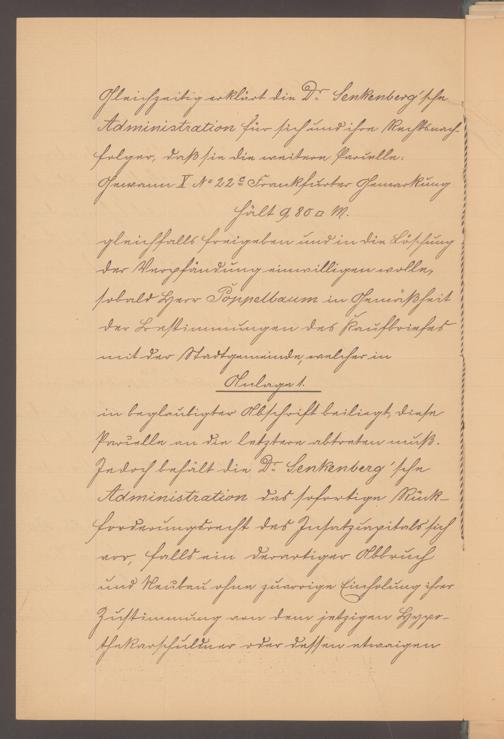 Gleichzeitig erklärt die Dr. Senkenberg'sche
Administration für sich und ihre Rechtsnach-
folger, daß sie die weitere Parzelle.
Gewann V No 22c Frankfurter Gemarkung
hält 9,80 □ M.
gleichfalls freigeben und in die Löschung
der Verpfändung einwilligen wolle,
sobald Herr Poppelbaum in Gemäßheit
der Bestimmungen des Kaufbriefes
mit der Stadtgemeinde, welcher in
Anlage 1.
in beglaubigter Abschrift beiliegt, diese
Parzelle an die letztere abtreten muß.
Jedoch behält die Dr. Senkenberg'sche
Administration das sofortige Rück-
forderungsrecht des Insatzcapitals sich
vor, falls ein derartiger Abbruch
und Neubau ohne zuvorige Einholung ihrer
Zustimmung von dem jetzigen Hypo-
thekarschuldner oder dessen etwaigen